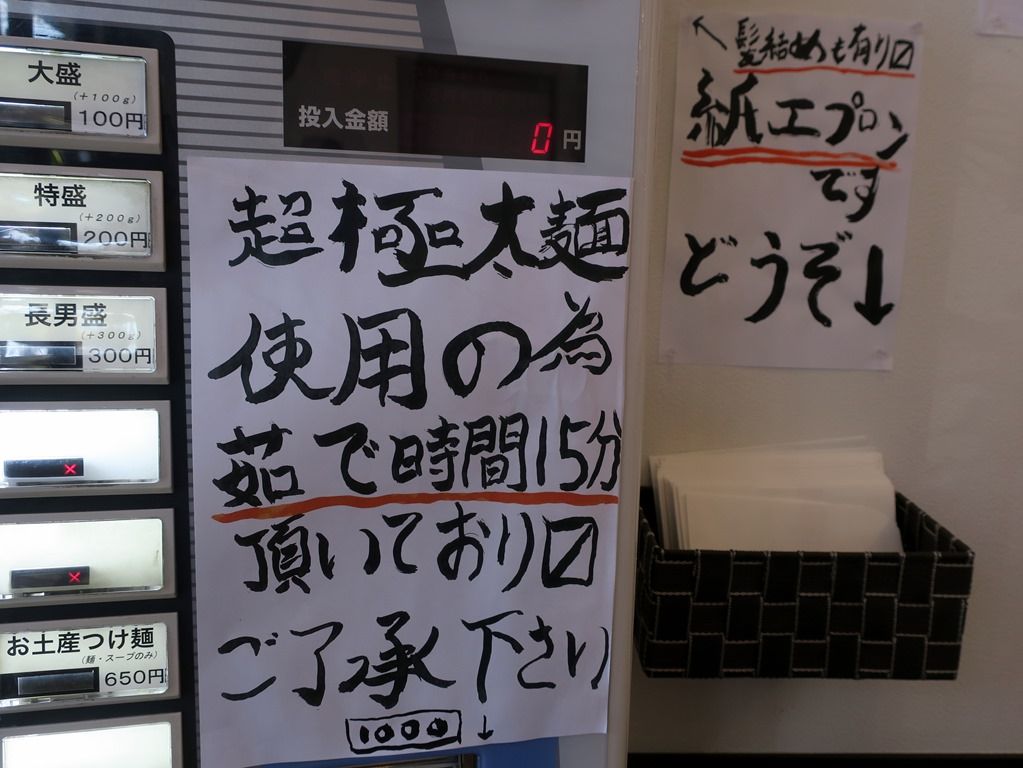 大盛
(+100g)
100円
特盛
(+200g)
200円
長男盛
(+300g)
300円
×
×
お土産つけ麺
(麺・スープのみ)
650円
投入金額
0円
超極太麺
使用の為
茹で時間15分
頂いており〼
ご了承下さい
1000↓
↖髪結めも有り〼
紙エプロン
です
どうぞ↓